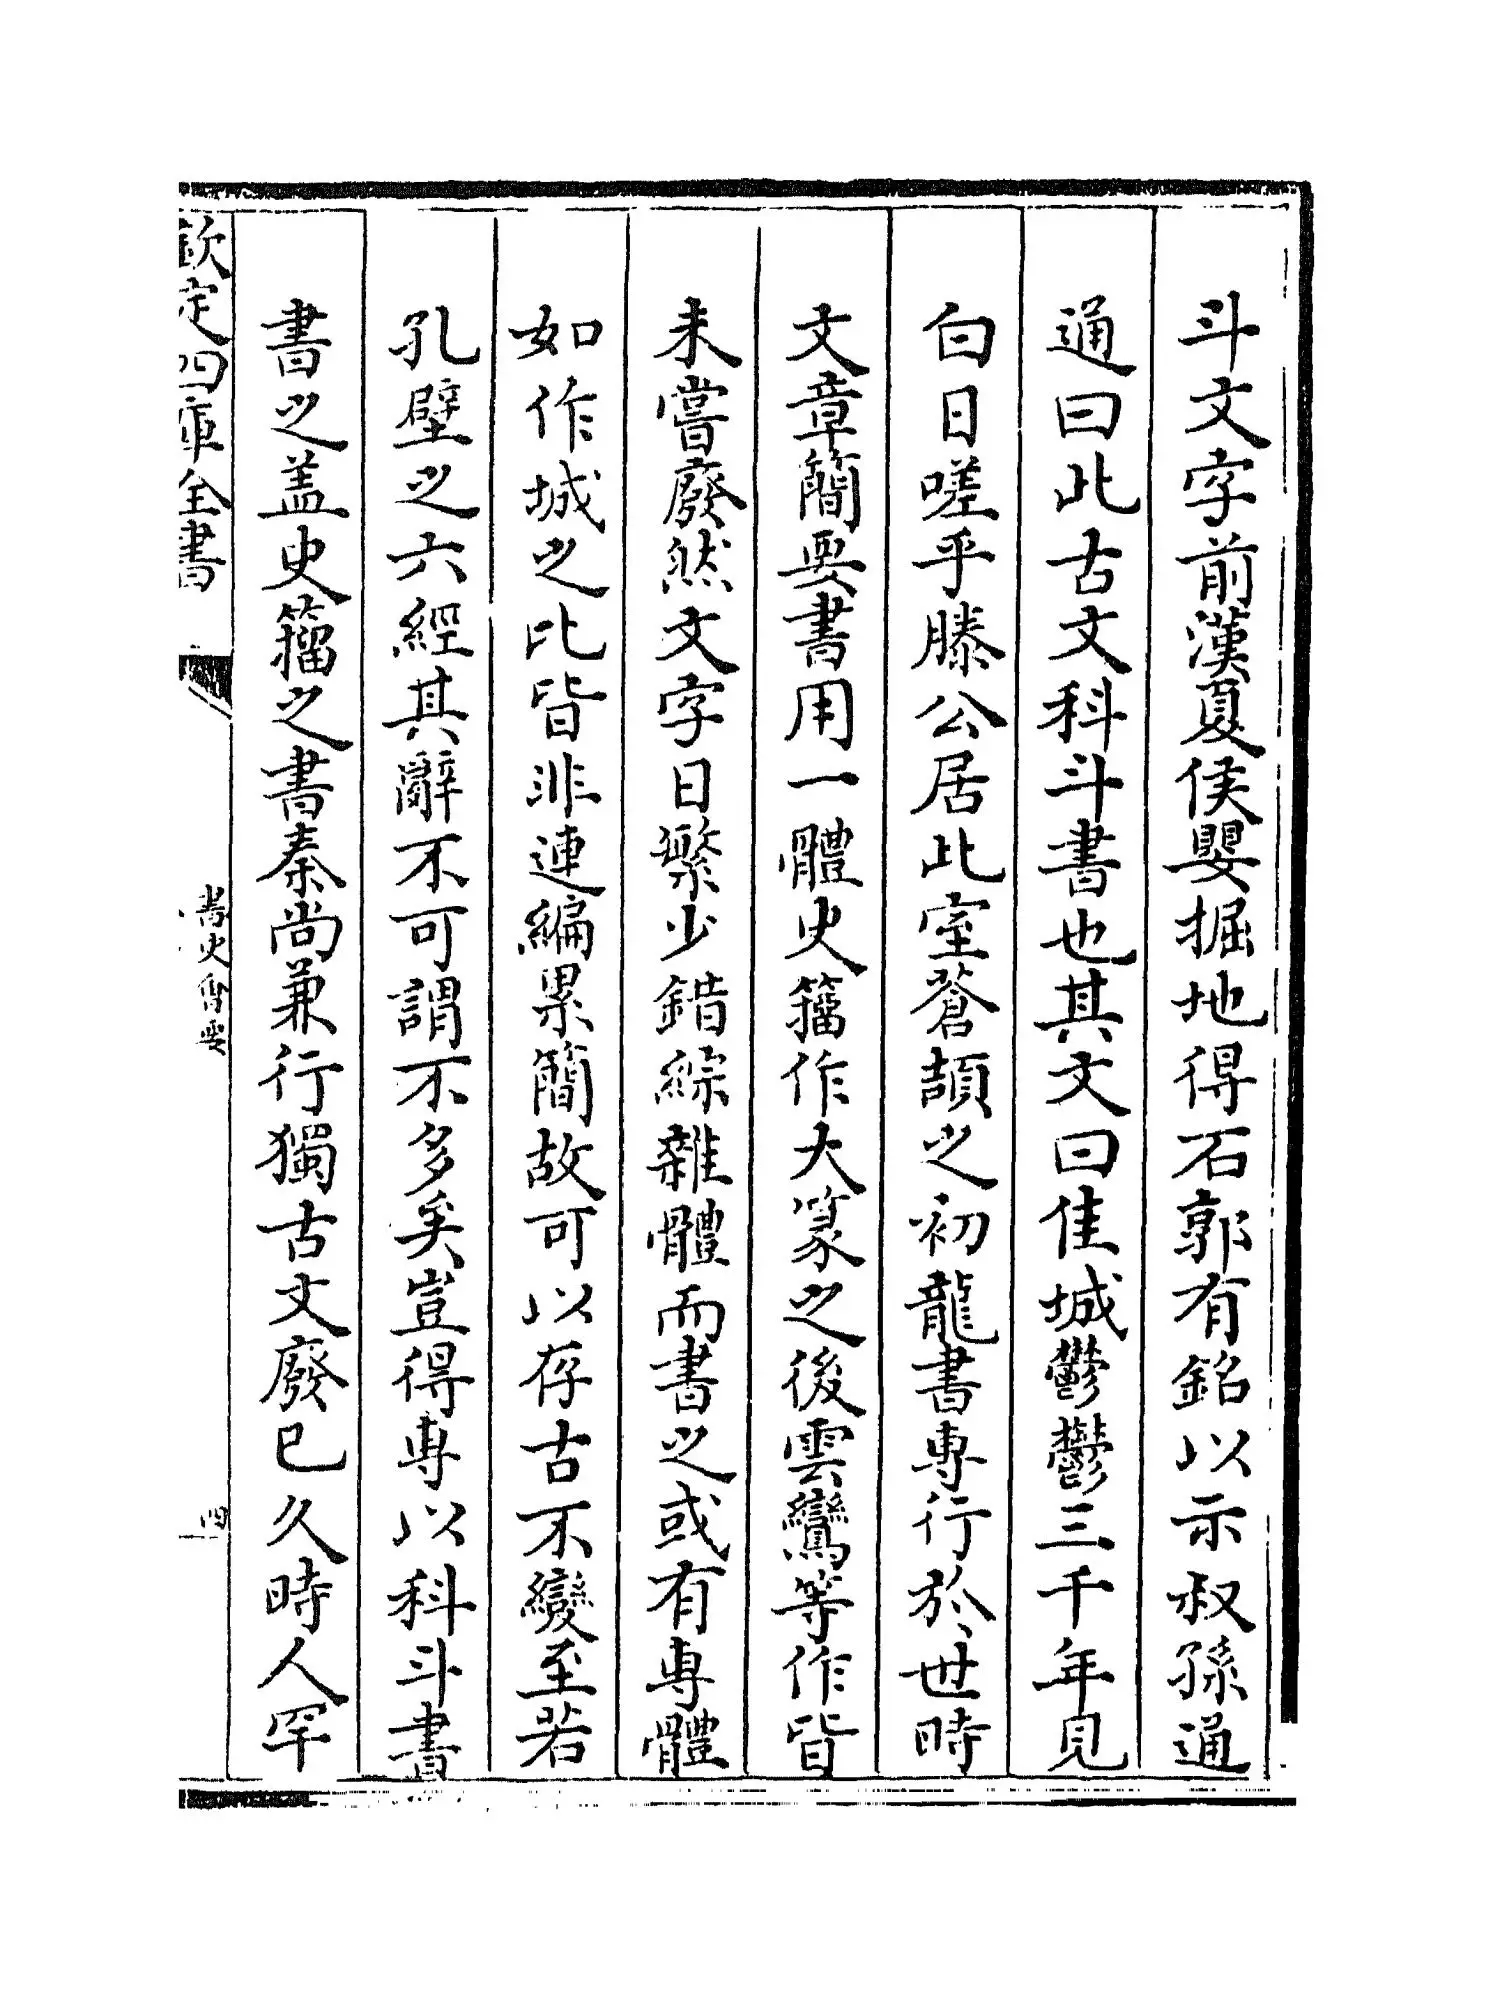 斗文字前漢夏侯嬰掘地得石郭有銘以示叔孫通
通曰此古文科斗書也其文曰佳城鬱鬱三千年見
白日嗟乎滕公居此室蒼頡之初龍書專行於世時
文章簡要書用一體史籀作大篆之後雲鸞等作皆
未嘗廢然文字日繁少錯綜雜體而書之或有專體
如作城之比皆非連編累簡故可以存古不變至若
孔壁之六經其辭不可謂不多矣豈得專以科斗書
書之盖史籀之書秦尚兼行獨古文廢已久時人罕
欽定四庫全書
書史㑹要
四